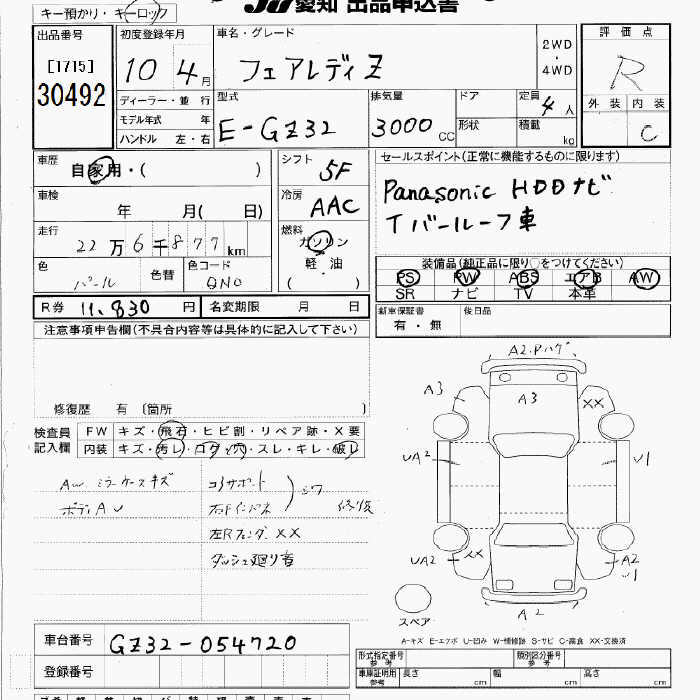 キー預かり・キーロック
愛知 出品申込書
出品番号
[1715]
30492
初度登録年月
10 4月
ディーラー・並 行
モデル年式 年
ハンドル 左・右
車名・グレード
フェアレディZ
2WD
・
4WD
型式
E-GZ32
排気量
3000CC
ドア
形状
定員 4人
積載 kg
評価点
R
外装 内装
C
車歴
自家用・( )
車検
年 月( 日)
走行
22万6千877km
色
パール
色替
色コード
QN0
シフト
5F
冷房
AAC
燃料
ガソリン
軽・油
( )
セールスポイント(正常に機能するものに限ります)
Panasonic HDDナビ
Tバールーフ車
装備品(純正品に限り○をつけてください)
PS PW ABS エアB AW
SR ナビ TV 本革
R券 11,830円
名変期限 月 日
新車保証書
有・無
後日品
注意事項申告欄(不具合内容等は具体的に記入して下さい)
修復歴 有 [箇所 ]
検査員
記入欄
FW キズ・飛石・ヒビ割・リペア跡・X要
内装 キズ・汚レ・コゲ・穴・スレ・キレ・破レ
AW ミラーケースキズ
ボディAU
コアサポート
右Fインドネ
シワ
修復
左Rフェンダ XX
ダッシュ廻り音
A2.Pハゲ
A3
A3
XX
UA2
U1
UA2
XX
A2
U1
A2
スペア
A-キズ E-エクボ U-凹み W-補修跡 S-サビ C-腐食 XX-交換済
車台番号 GZ32-054720
登録番号
形式指定番号
参考
類別区分番号
参考
車庫証明用
参考
長さ cm 幅 cm 高さ cm